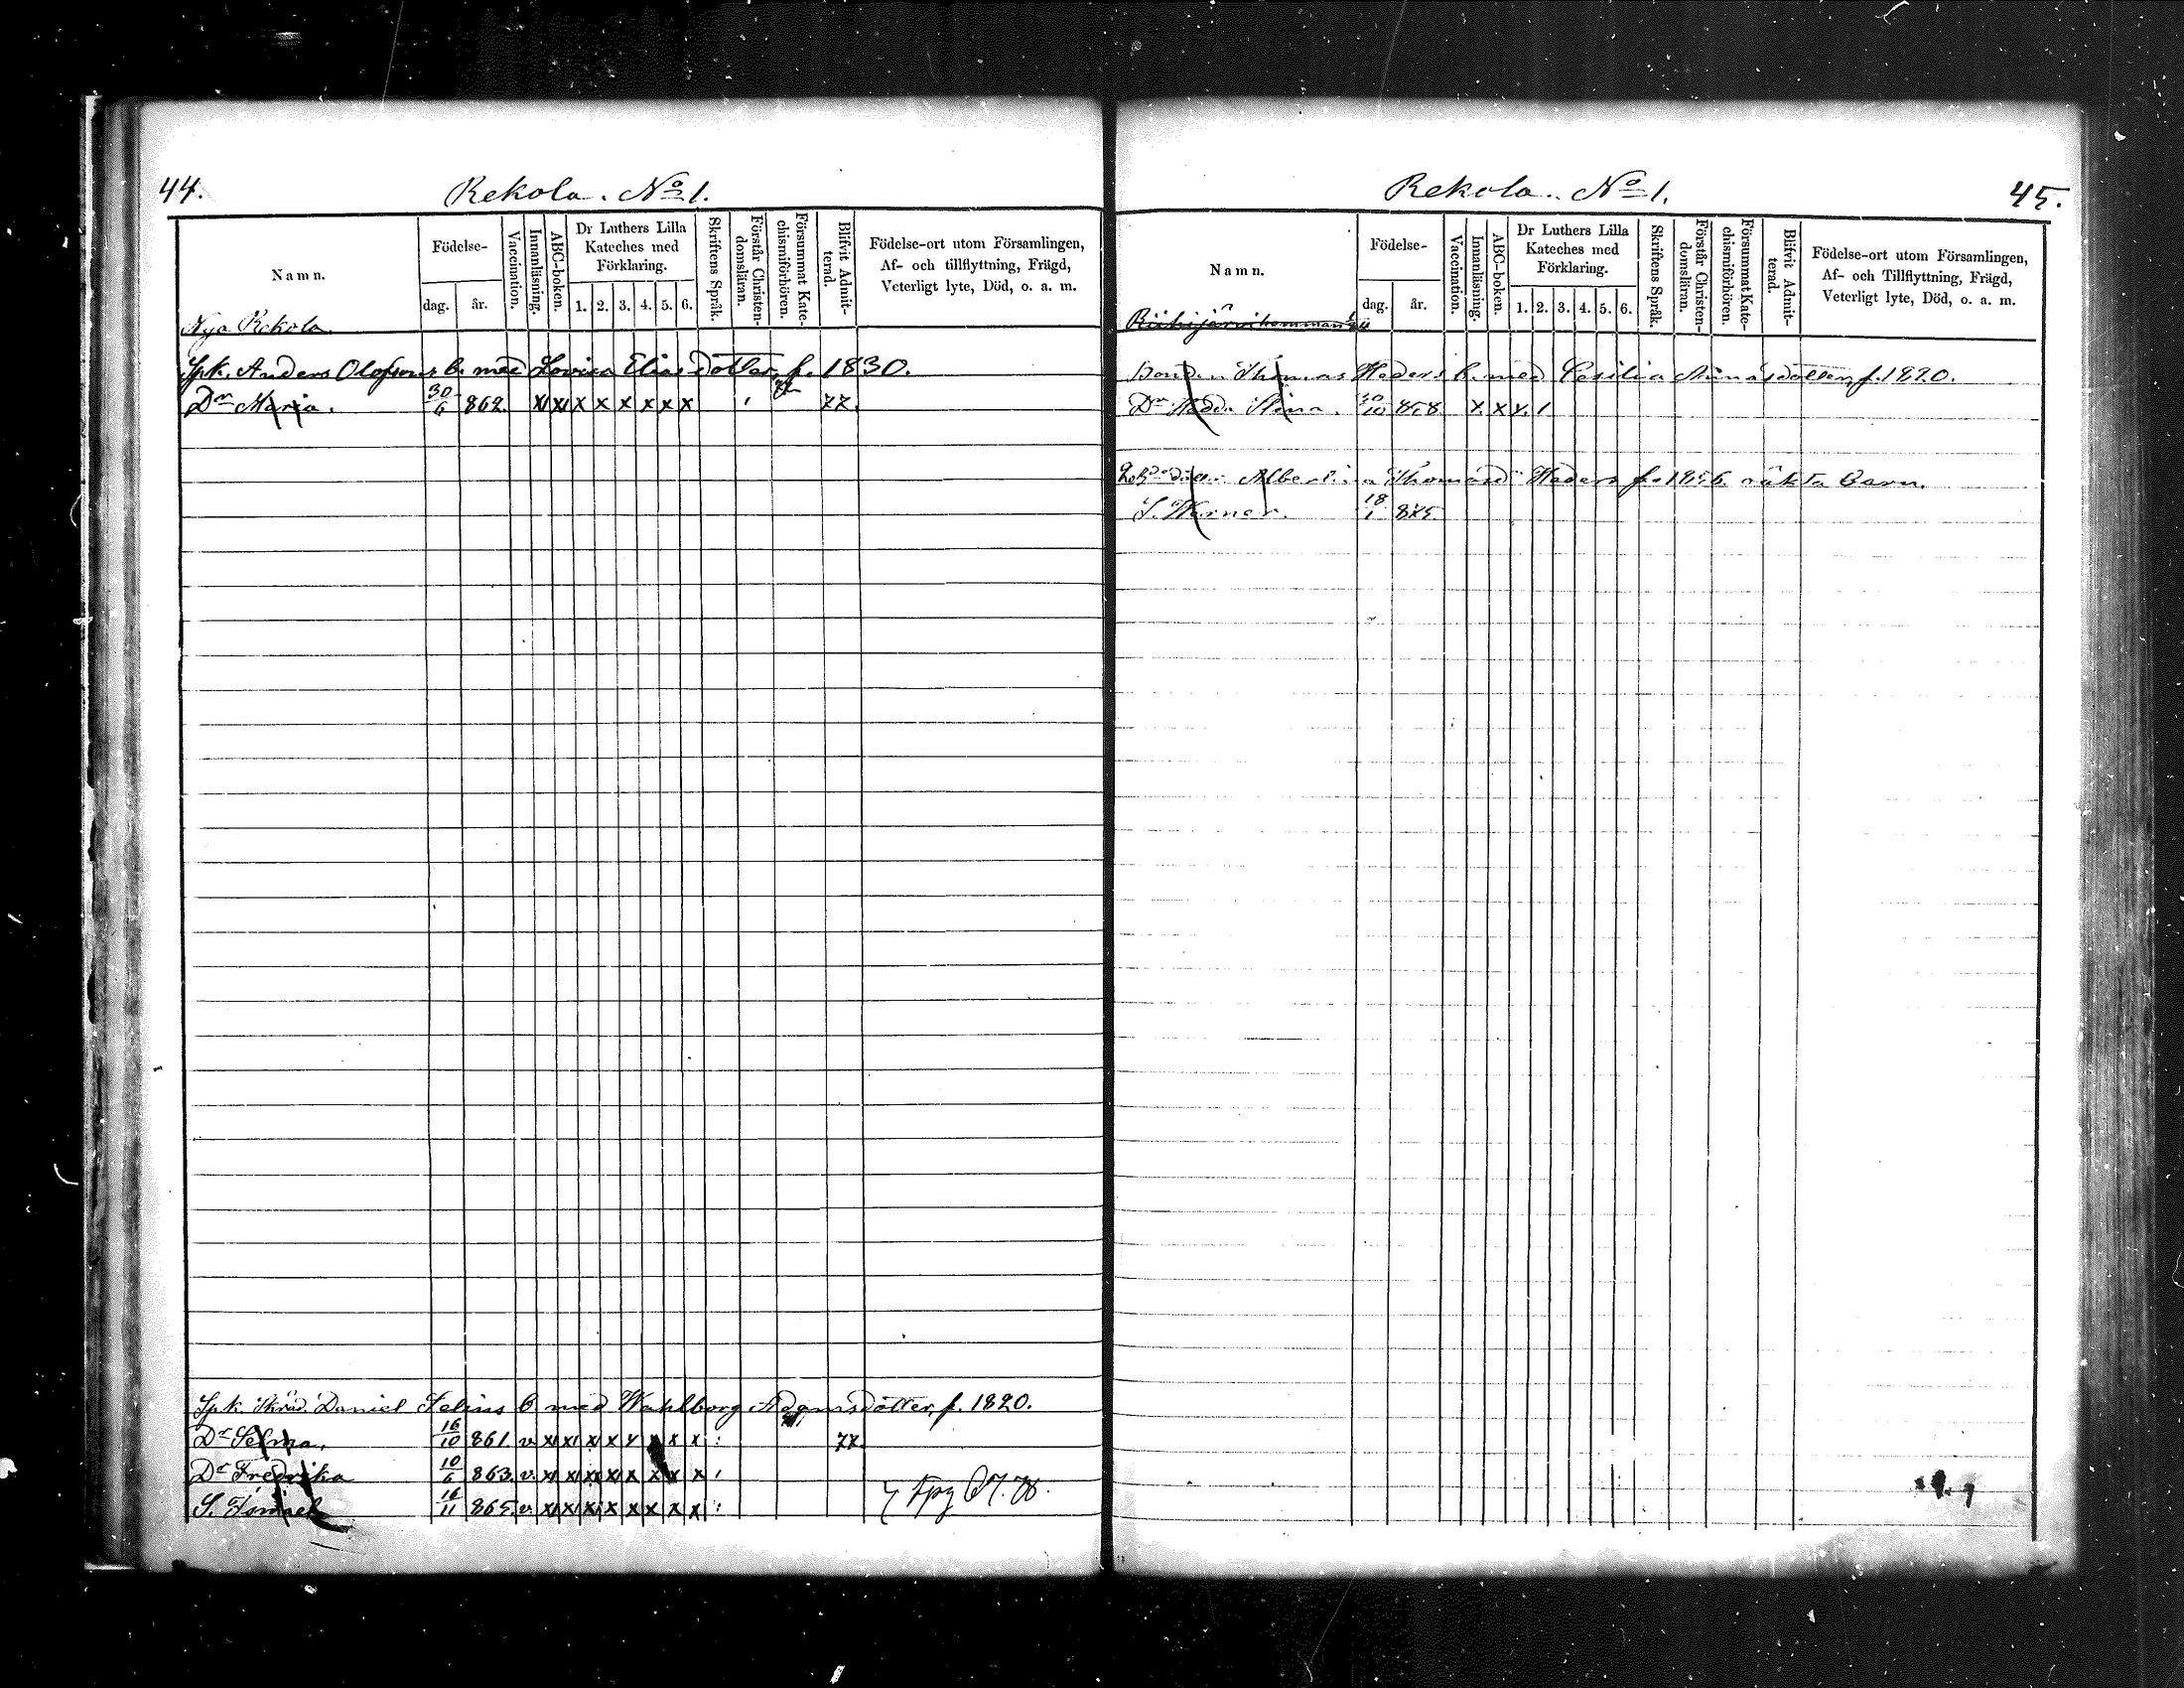 44.
Rekola. No 1.
Namn.
Födelse-
dag.
år.
Vaccination.
Innanläsning.
ABC-boken.
Dr Luthers Lilla
Kateches med
Förklaring.
1. 2. 3. 4. 5. 6.
Skriftens Språk.
Förstår Christen-
domsläran.
Försummat Kate-
chismiförhören.
Blifvit Admit-
terad.
Födelse-ort utom Församlingen,
Af- och tillflyttning, Frägd,
Veterligt lyte, Död, o. a. m.
Nya Rekola
Spk. Anders Olofsons b. med Lovisa Eliasdotter, f. 1830.
Dr Maria. 30/6 862. x x x x x x x x 77.
Spk. Skräd. Daniel Felins b. med Wahlborg Adamsdotter, f. 1820.
Dr Selma. 16/10 861. v. x x x x x x x x 77.
Dr Fredrika 10/6 863. v. x x x x x x x x
S. 16/11 865. v. x x x x x x x x
45.
Rekola. No 1.
Namn.
Födelse-
dag.
år.
Vaccination.
Innanläsning.
ABC-boken.
Dr Luthers Lilla
Kateches med
Förklaring.
1. 2. 3. 4. 5. 6.
Skriftens Språk.
Förstår Christen-
domsläran.
Försummat Kate-
chismiförhören.
Blifvit Admit-
terad.
Födelse-ort utom Församlingen,
Af- och Tillflyttning, Frägd,
Veterligt lyte, Död, o. a. m.
Bonden Thomas Heders b. med Cesilia f. 1820.
Dr Hedda Stina. 30/10 858 x x x 1
Albertina Thomasd Heders f. 1856 oäkta barn.
S. Werner. 18/1 875.